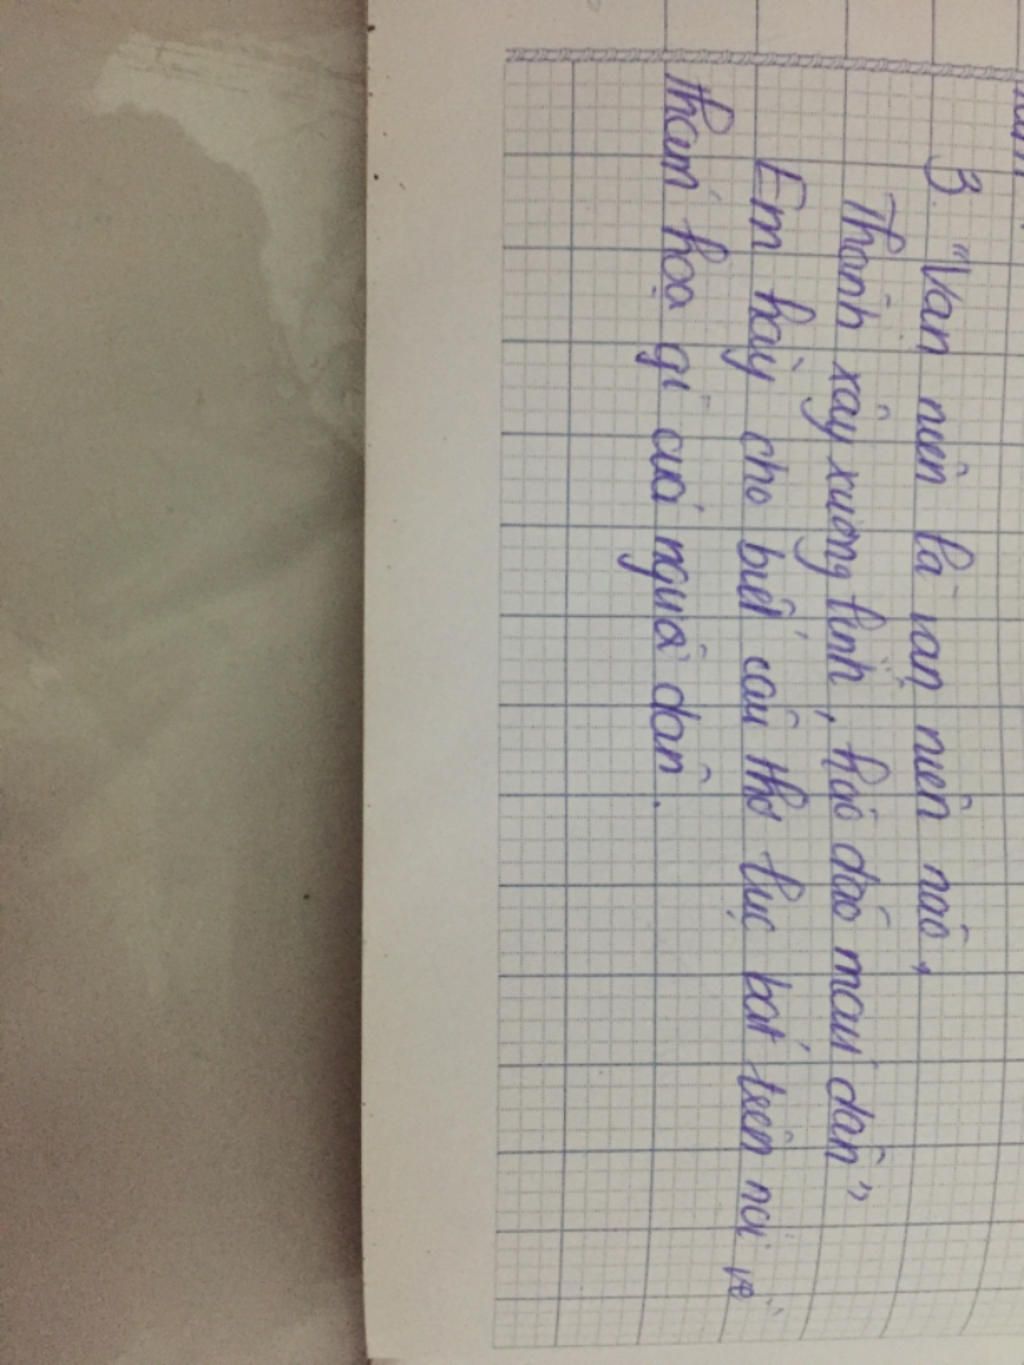 3. "Vạn niên là vạn niên nào,
Thành xây xương lính, hào đào máu dân"
Em hãy cho biết câu thơ lục bát trên nói về
thảm hoạ gì của người dân.